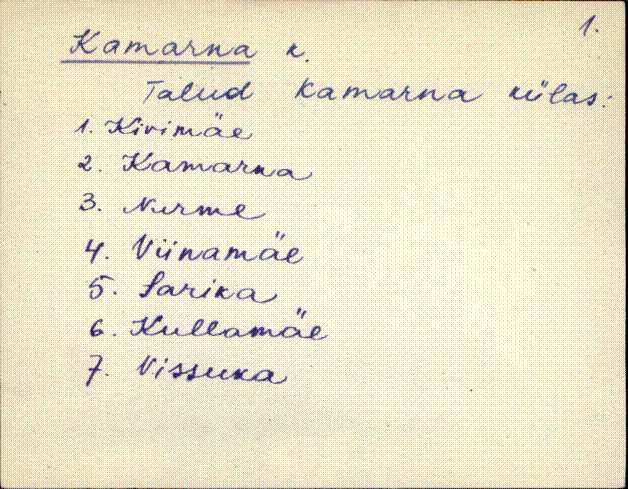 1.
Kamarna k.
Talud Kamarna külas:
1. Kivimäe
2. Kamarna
3. Nurme
4. Viinamäe
5. Sarika
6. Kullamäe
7. Vissuka